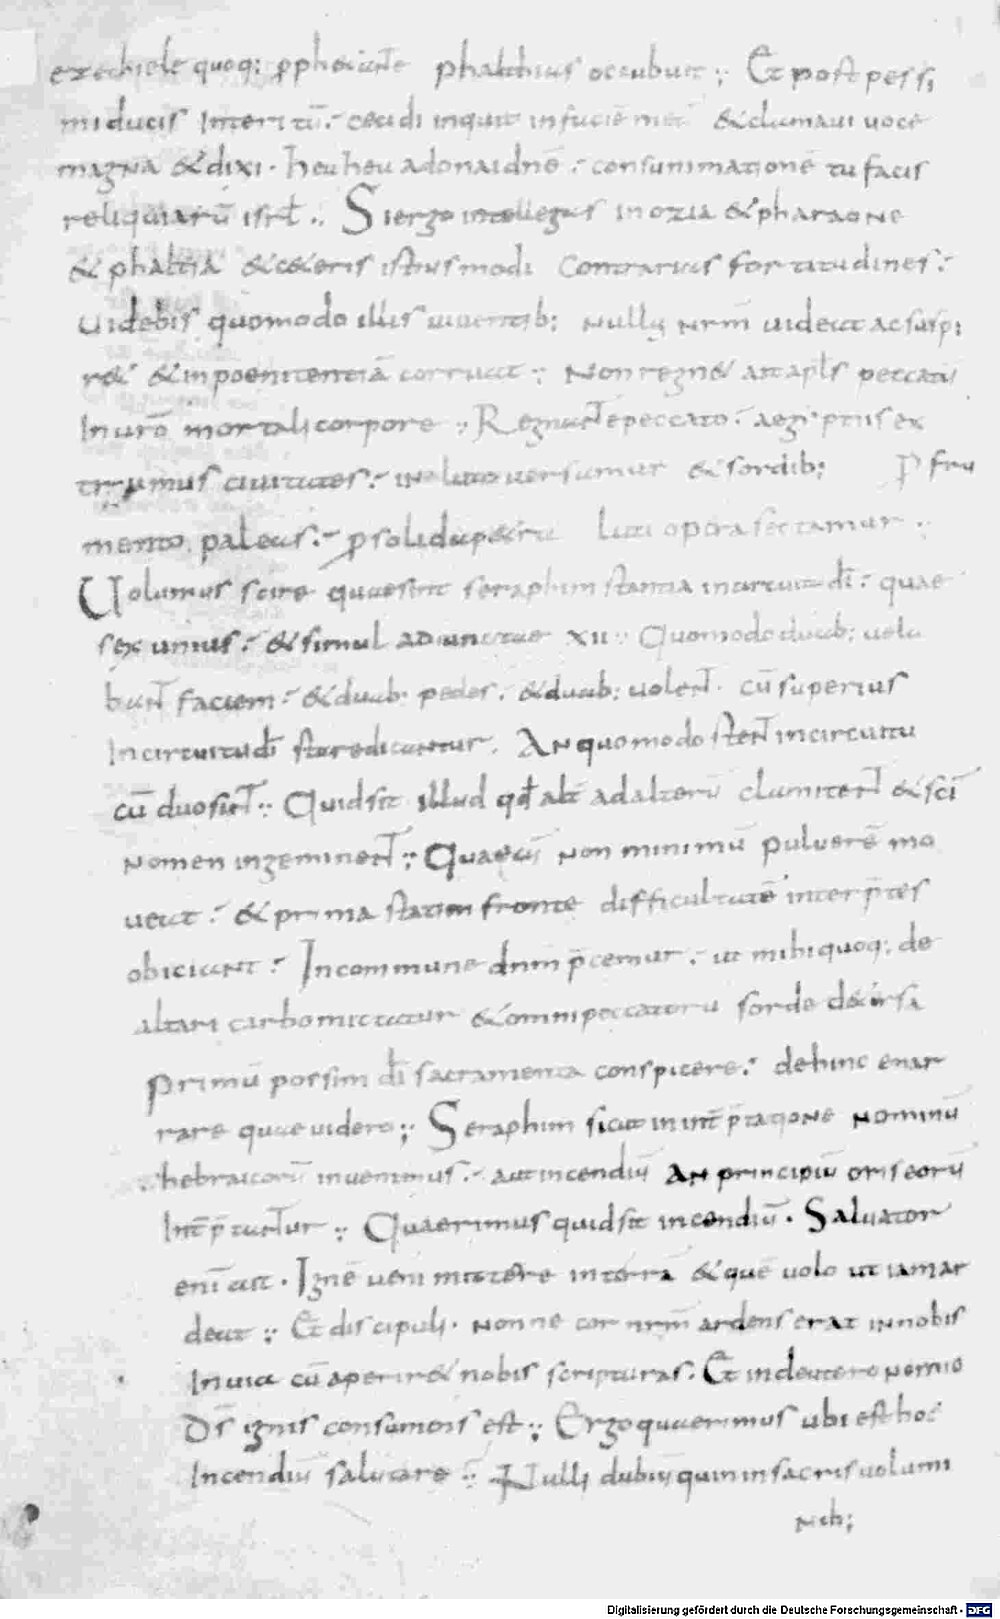 ezechiele quoq; ꝓphetante phalthias occubuit ;, Et post pessi
mi ducis interitū :~ cecidi inquit in faciē meā &clamaui uoce
magna &dixi · heu heu adonai dnē :~ consummationē tu facis
reliquiarū isrł :. Si ergo intellegas in ozia &pharaone
&phaltia &ceteris istius modi contrarias fortitudines :~
Uidebis quomodo illis uiuentib; nullus nrm̄ uideat ac suspi
ret &inpoenitentiā corruat ;, Non regnet ait apłs peccatū
In uro mortali corpore ;, Regnante peccato :~ aegiptiis ex
truimus ciuitates :~ in luto uersamur &sordib; ꝓ fru
mento paleas :~ ꝓ solida petra luti opera sectamur ;,
Uolumus scire quae sint seraphim stantia incircuitu dī :~ quae
sex unius :~ &simul adiunctae xii ;, Quomodo duab; uela
bant faciem :~ &duab; pedes :~ &duab; uolent · cū superius
Incircuitu dī stare dicantur · An quomodo stent incircuitu
cū duo sint ;, Quid sit illud qd alt ad alterū clamitent &scī
nomen ingeminent ;, Quaestī non minimū puluerē mo
ueat :~ &prima statim fronte difficultatē interp̄tes
obiciant :~ In commune dnm p̄cemur :~ ut mihi quoq; de
altari carbo mittatur &omni peccatorū sorde detersa
primū possim dī sacramenta conspicere :~ dehinc enar
rare quae uidero ;, Seraphim sicut in int̄p̄tatione nominū
hebraicorū inuenimus :~ aut incendiū an principiū oris eorū
Int̄p̄tantur ;, Quaerimus quid sit incendiū · Saluator
enī ait · Ignē ueni mittere in terrā &quē uolo ut iam ar
deat ;, Et discipuli · nonne cor nrm̄ ardens erat in nobis
In uia cū aperiret nobis scripturas · Et in deuteronomio
Ds̄ ignis consumens est ;, Ergo quaerimus ubi est hoc
Incendiū salutare ;, Nulli dubiū quin in sacris uolumi
nib;
Digitalisierung gefördert durch die Deutsche Forschungsgemeinschaft - DFG